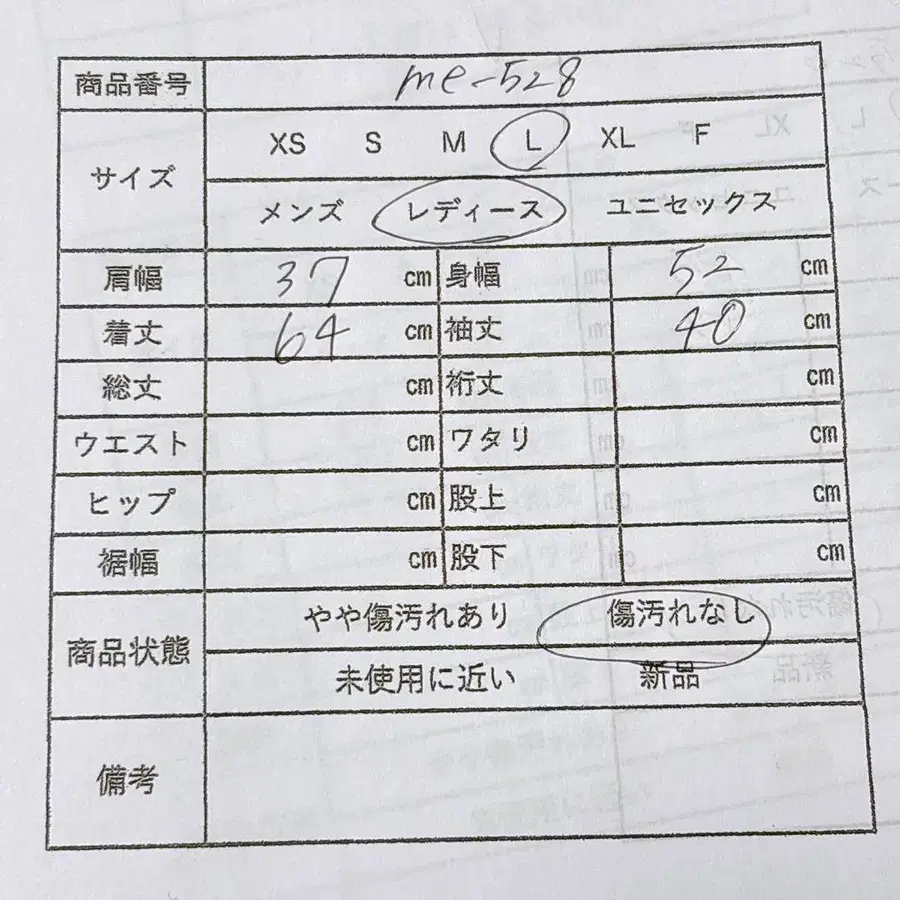 商品番号 me-528
サイズ XS S M L XL F
メンズ レディース ユニセックス
肩幅 37 cm 身幅 52 cm
着丈 64 cm 袖丈 40 cm
総丈 cm 裄丈 cm
ウエスト cm ワタリ cm
ヒップ cm 股上 cm
裾幅 cm 股下 cm
商品状態 やや傷汚れあり 傷汚れなし
未使用に近い 新品
備考